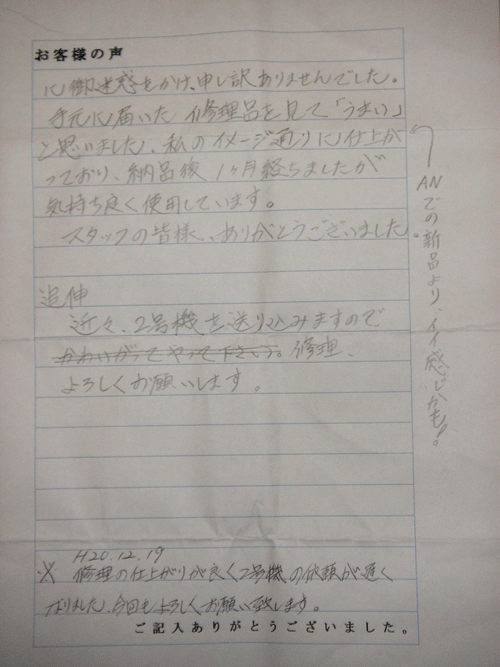 お客様の声
に御迷惑をかけ、申し訳ありませんでした。
手元に届いた修理品を見て「うまい」
と思いました、私のイメージ通りに仕上が
っており、納品後1ヶ月経ちましたが
気持ち良く使用しています。
スタッフの皆様、ありがとうございました。
ANでの新品より、イイ感じかも!
追伸
近々、2号機を送り込みますので
かわいがってやって下さい。修理、
よろしくお願いします。
H20.12.19
※ 修理の仕上がりが良く2号機の依頼が遅く
なりました、今回もよろしくお願い致します。
ご記入ありがとうございました。